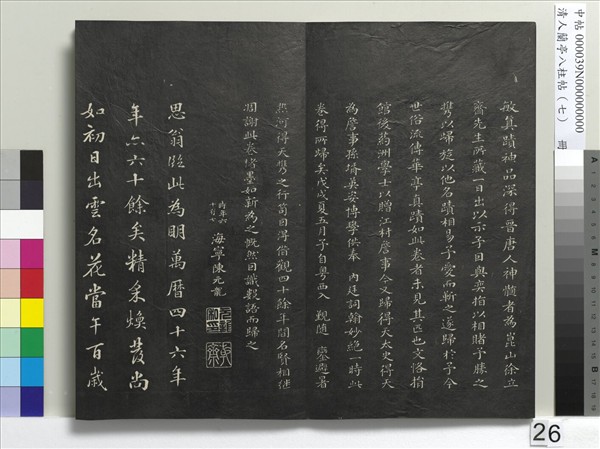 敏真蹟神品深得晉唐人神髓者為崑山徐立
齋先生所藏一日出以示予因與奕指以相賭予勝之
攜以歸旋以他名蹟相易予愛而靳之遂歸於予今
世俗流傳華亭真蹟如此卷者未見其匹也文恪揩
館後藥洲學士以贈江村詹事今又歸得天太史得天
為詹事孫壻英妄博學供奉 內廷詞翰妙絕一時此
卷得所歸矣戊戌夏五月予自粵西入 覲隨 蹕避暑
熱河得天攜之行笥因得借觀四十餘年間名賢相繼
凋謝此卷猶墨如新為之慨然因識數語而歸之
海寧陳元龍
思翁臨此為明萬曆四十六年
年六六十餘矣精采煥發尚
如初日出雲名花當午百歲
中帖 000039N000000000
清人蘭亭八柱帖(七)
26